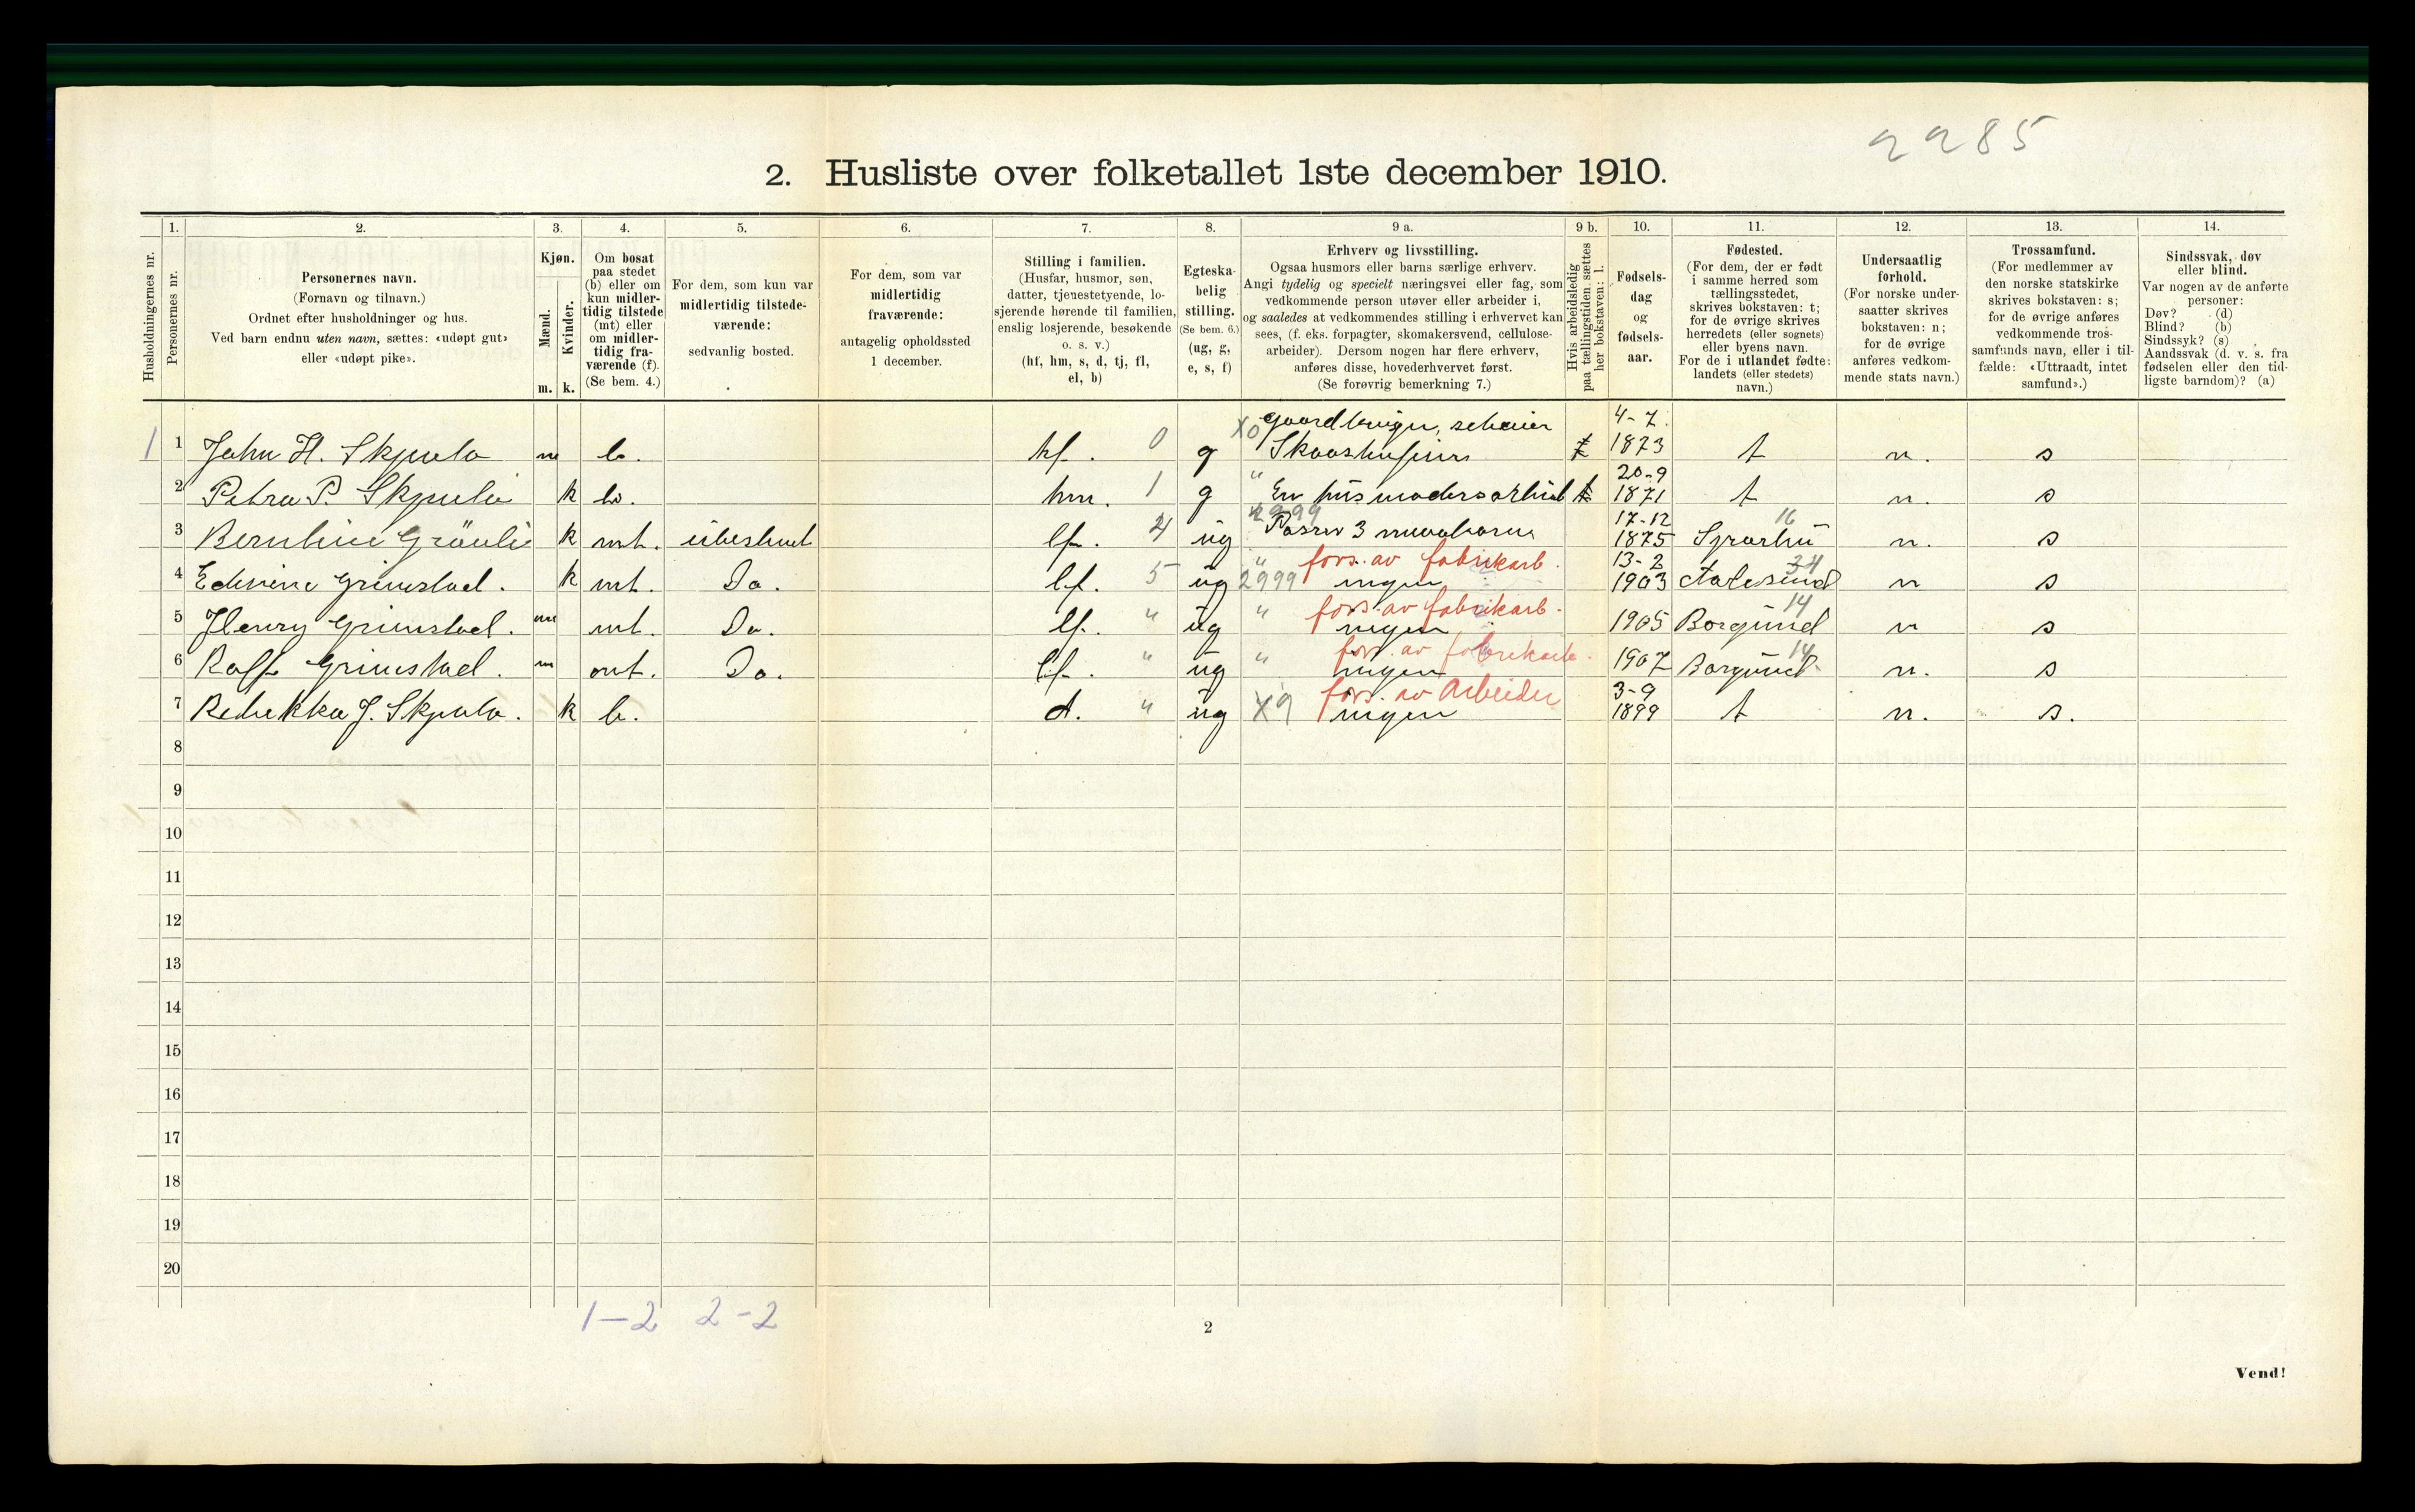 2285
2. Husliste over folketallet 1ste december 1910.
1. 2. 3. 4. 5. 6. 7. 8. 9 a. 9 b. 10. 11. 12. 13. 14.
Husholdningernes nr.
Personernes nr.
Personernes navn.
(Fornavn og tilnavn.)
Ordnet efter husholdninger og hus.
Ved barn endnu uten navn, sættes: «udøpt gut»
eller «udøpt pike».
Kjøn.
Mænd.
Kvinder.
m. k.
Om bosat
paa stedet
(b) eller om
kun midler-
tidig tilstede
(mt) eller
om midler-
tidig fra-
værende (f).
(Se bem. 4.)
For dem, som kun var
midlertidig tilstede-
værende:
sedvanlig bosted.
For dem, som var
midlertidig
fraværende:
antagelig opholdssted
1 december.
Stilling i familien.
(Husfar, husmor, søn,
datter, tjenestetyende, lo-
sjerende hørende til familien,
enslig losjerende, besøkende
o. s. v.)
(hf, hm, s, d, tj, fl,
el, b)
Egteska-
belig
stilling.
(Se bem. 6.)
(ug, g,
e, s, f)
Erhverv og livsstilling.
Ogsaa husmors eller barns særlige erhverv.
Angi tydelig og specielt næringsvei eller fag, som
vedkommende person utøver eller arbeider i,
og saaledes at vedkommendes stilling i erhvervet kan
sees, (f. eks. forpagter, skomakersvend, cellulose-
arbeider). Dersom nogen har flere erhverv,
anføres disse, hovederhvervet først.
(Se forøvrig bemerkning 7.)
Hvis arbeidsledig
paa tællingstiden sættes
her bokstaven: l.
Fødsels-
dag
og
fødsels-
aar.
Fødested.
(For dem, der er født
i samme herred som
tællingsstedet,
skrives bokstaven: t;
for de øvrige skrives
herredets (eller sognets)
eller byens navn.
For de i utlandet fødte:
landets (eller stedets)
navn.)
Undersaatlig
forhold.
(For norske under-
saatter skrives
bokstaven: n;
for de øvrige
anføres vedkom-
mende stats navn.)
Trossamfund.
(For medlemmer av
den norske statskirke
skrives bokstaven: s;
for de øvrige anføres
vedkommende tros-
samfunds navn, eller i til-
fælde: «Uttraadt, intet
samfund».)
Sindssvak, døv
eller blind.
Var nogen av de anførte
personer:
Døv? (d)
Blind? (b)
Sindssyk? (s)
Aandssvak (d. v. s. fra
fødselen eller den tid-
ligste barndom)? (a)
1 1 John H. m b. hf. 0 g X0 4-7 1873 t n. s
2 Petra P. k b. hm. 1 g " En husmodersarbeid 20-9 1871 t n. s
3 k mt. ubestemt 4 ug 3 17-12 1875 16 n. s
4 Grimstad. k mt. Do. 5 ug 2999 " fors. av fabrikarb. ingen 13-2 1903 Aalesund 34 n s
5 Henry Grimstad. m mt. Do. " ug " fors. av fabrikarb. ingen 1905 Borgund 14 n s
6 Rolf Grimstad. m mt. Do. " ug " fors. av fabrikarb. ingen 1907 Borgund 14 n. s
7 Rebekka J. k b. d. " ug X9 fors. av Arbeider ingen 3-9 1899 t n. s.
8
9
10
11
12
13
14
15
16
17
18
19
20
1-2 2-2
2
Vend!